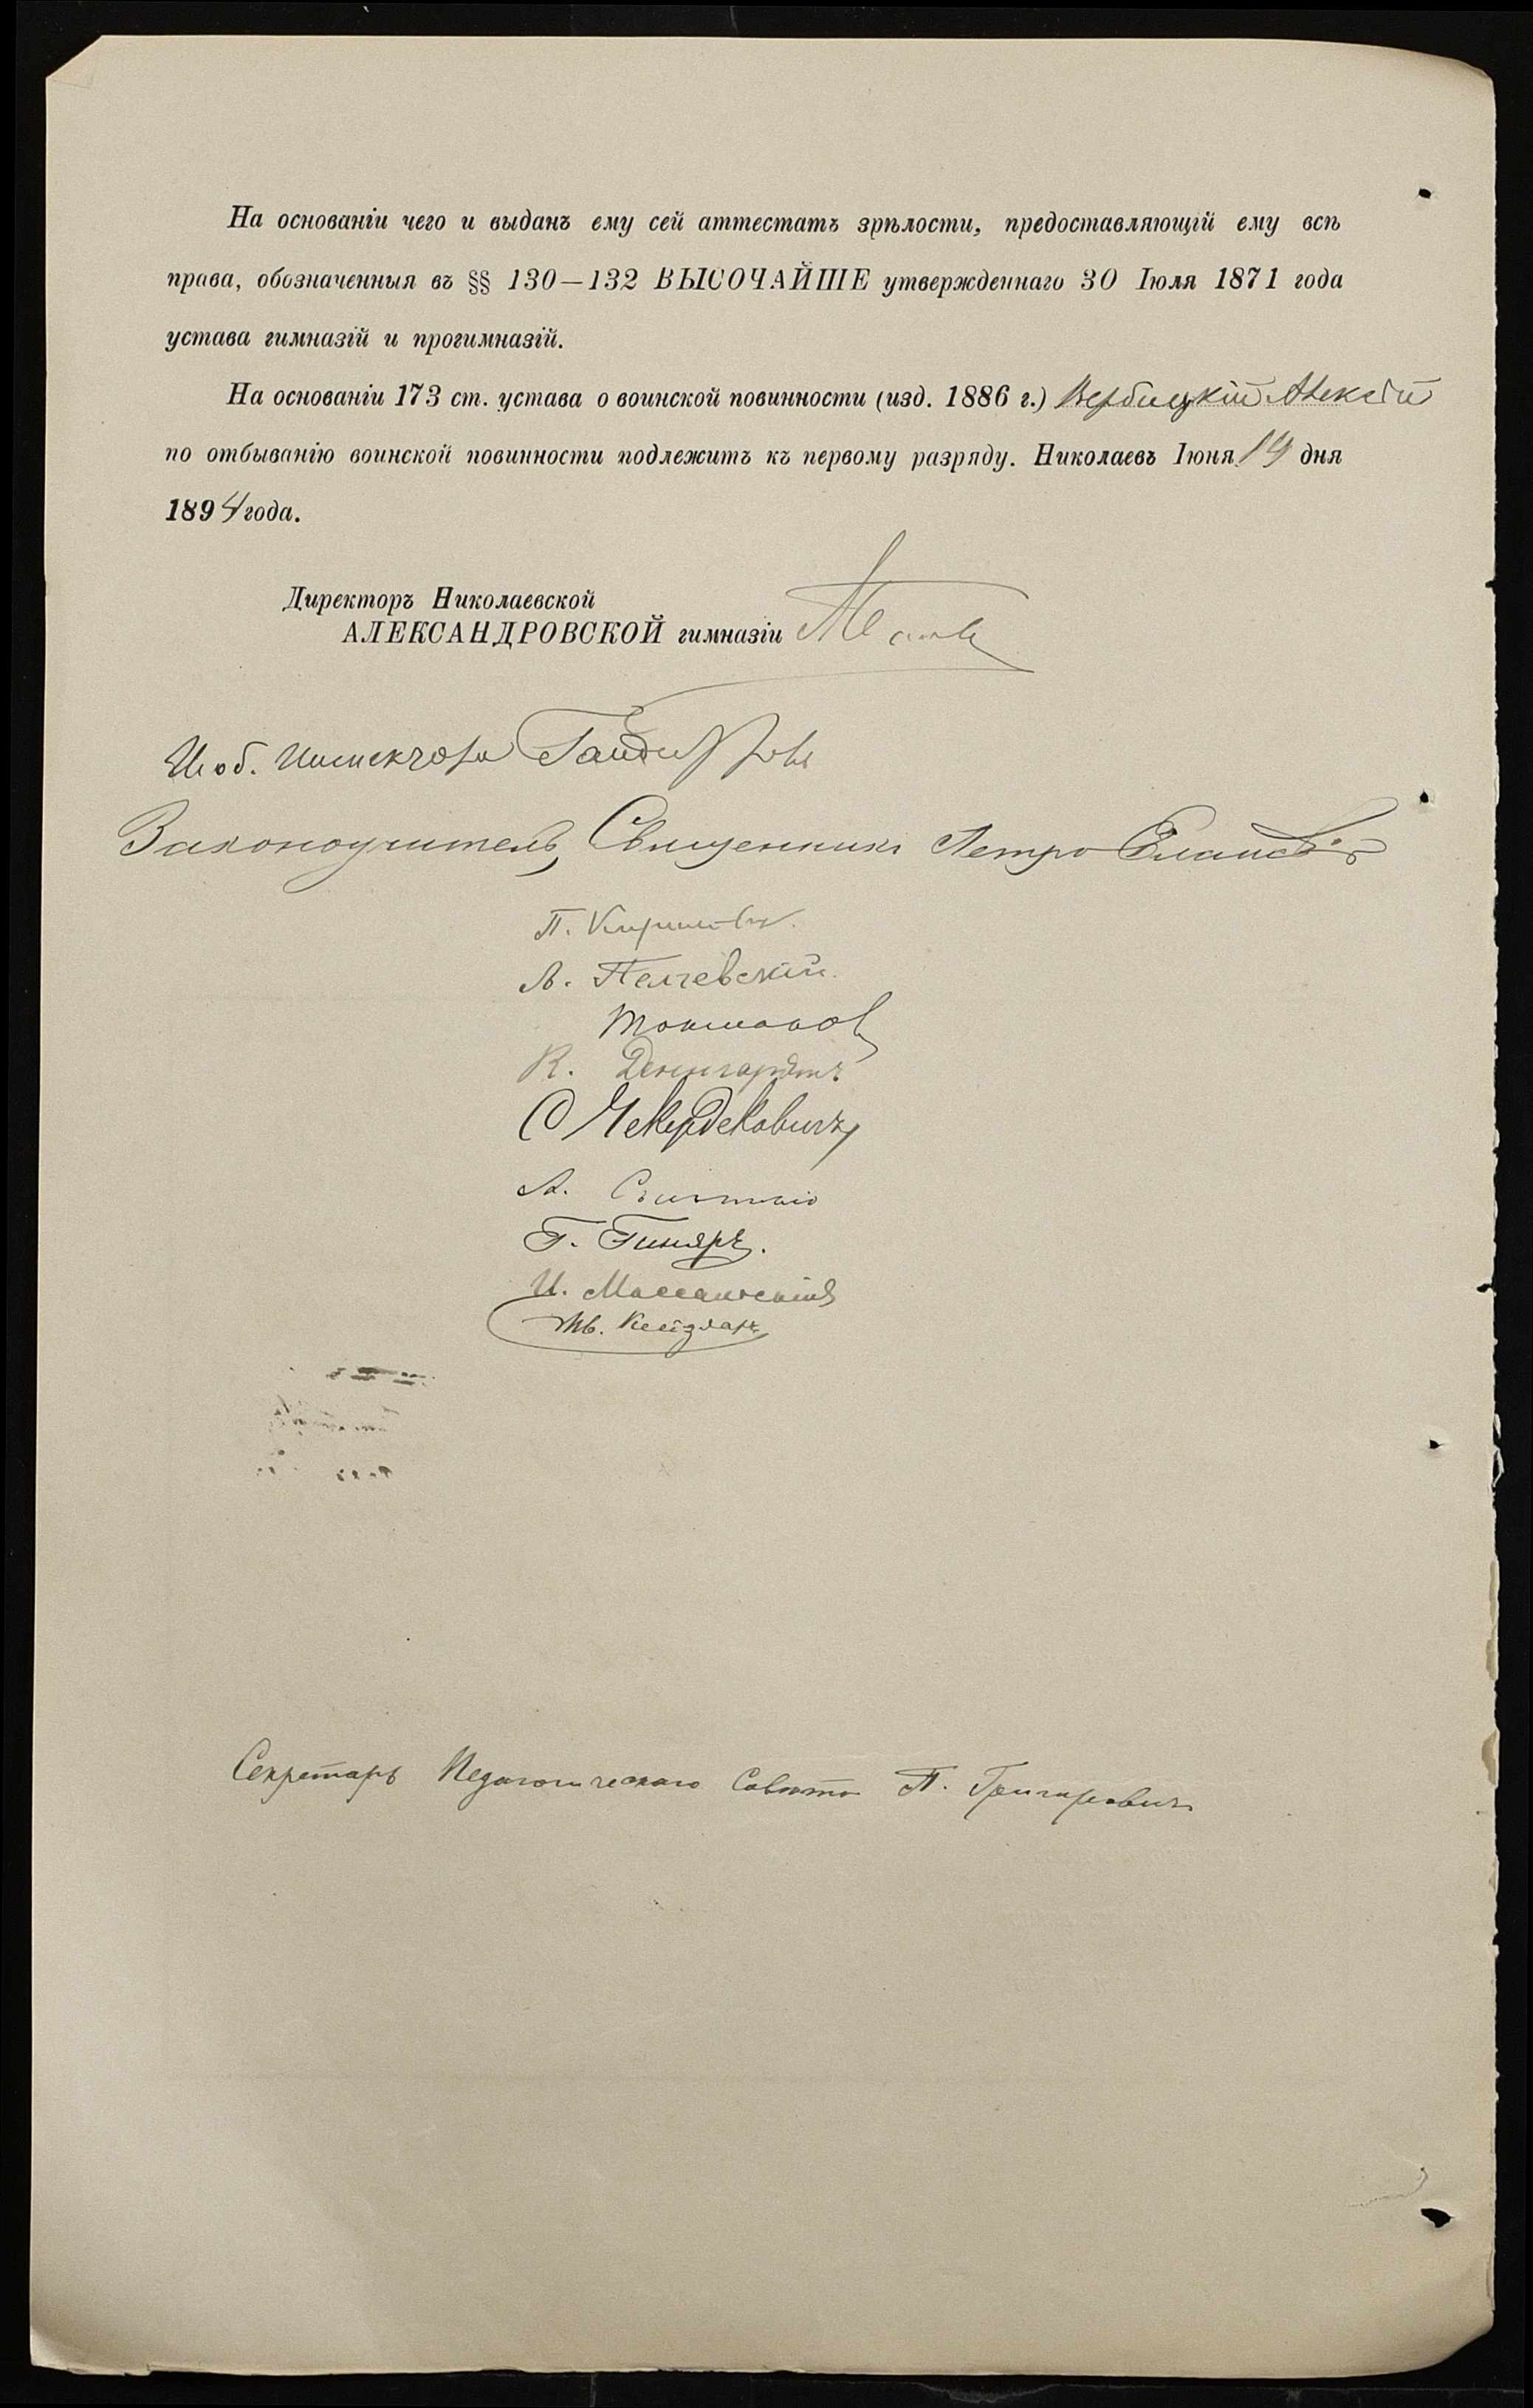 На основаніи чего и выданъ ему сей аттестатъ зрѣлости, предоставляющій ему всѣ
права, обозначенныя въ §§ 130—132 ВЫСОЧАЙШЕ утвержденнаго 30 Іюля 1871 года
устава гимназій и прогимназій.
На основаніи 173 ст. устава о воинской повинности (изд. 1886 г.) Вербицкій Алексѣй
по отбыванію воинской повинности подлежитъ къ первому разряду. Николаевъ Іюня 19 дня
1894 года.
Директоръ Николаевской
АЛЕКСАНДРОВСКОЙ гимназіи
И об. Инспектора
Законоучитель, Священникъ Петръ Еланскій
П. Кириловъ.
А. Пелчевскій.
Токмаковъ
К. Денгардтъ
С Чекердековичъ
А.
Г. Гиняръ.
И. Массальскій
Ив. Кейзларъ
Секретарь Педагогическаго Совѣта П. Григоровичъ